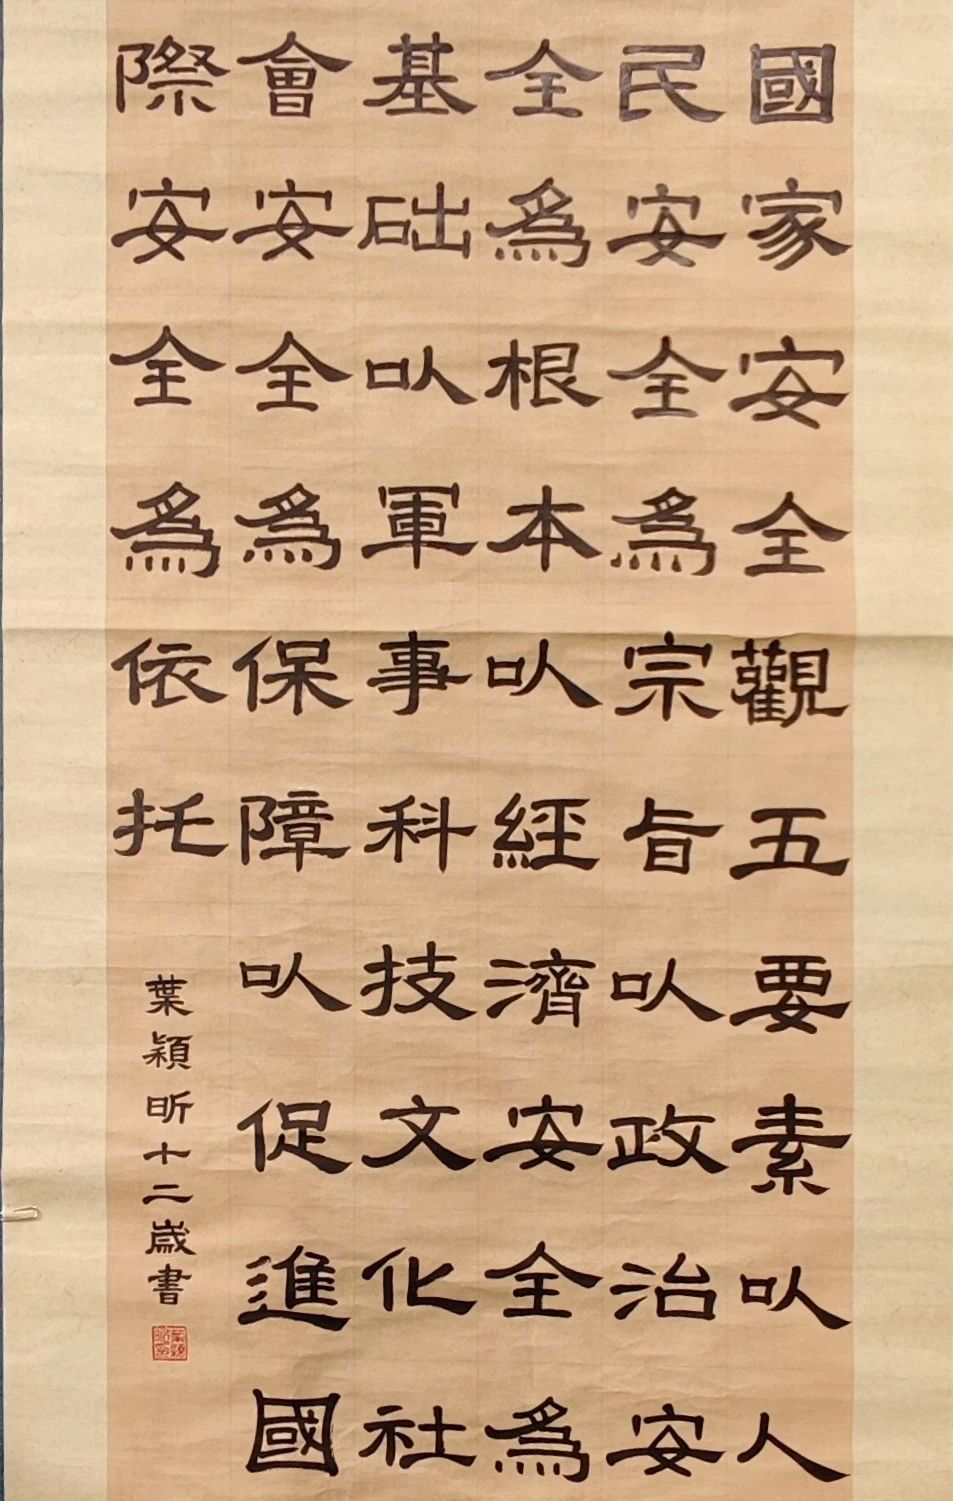 國家安全觀五要素以人
民安全為宗旨以政治安
全為根本以經濟安全為
基础以軍事科技文化社
會安全為保障以促進國
際安全為依托
葉穎昕十二歲書